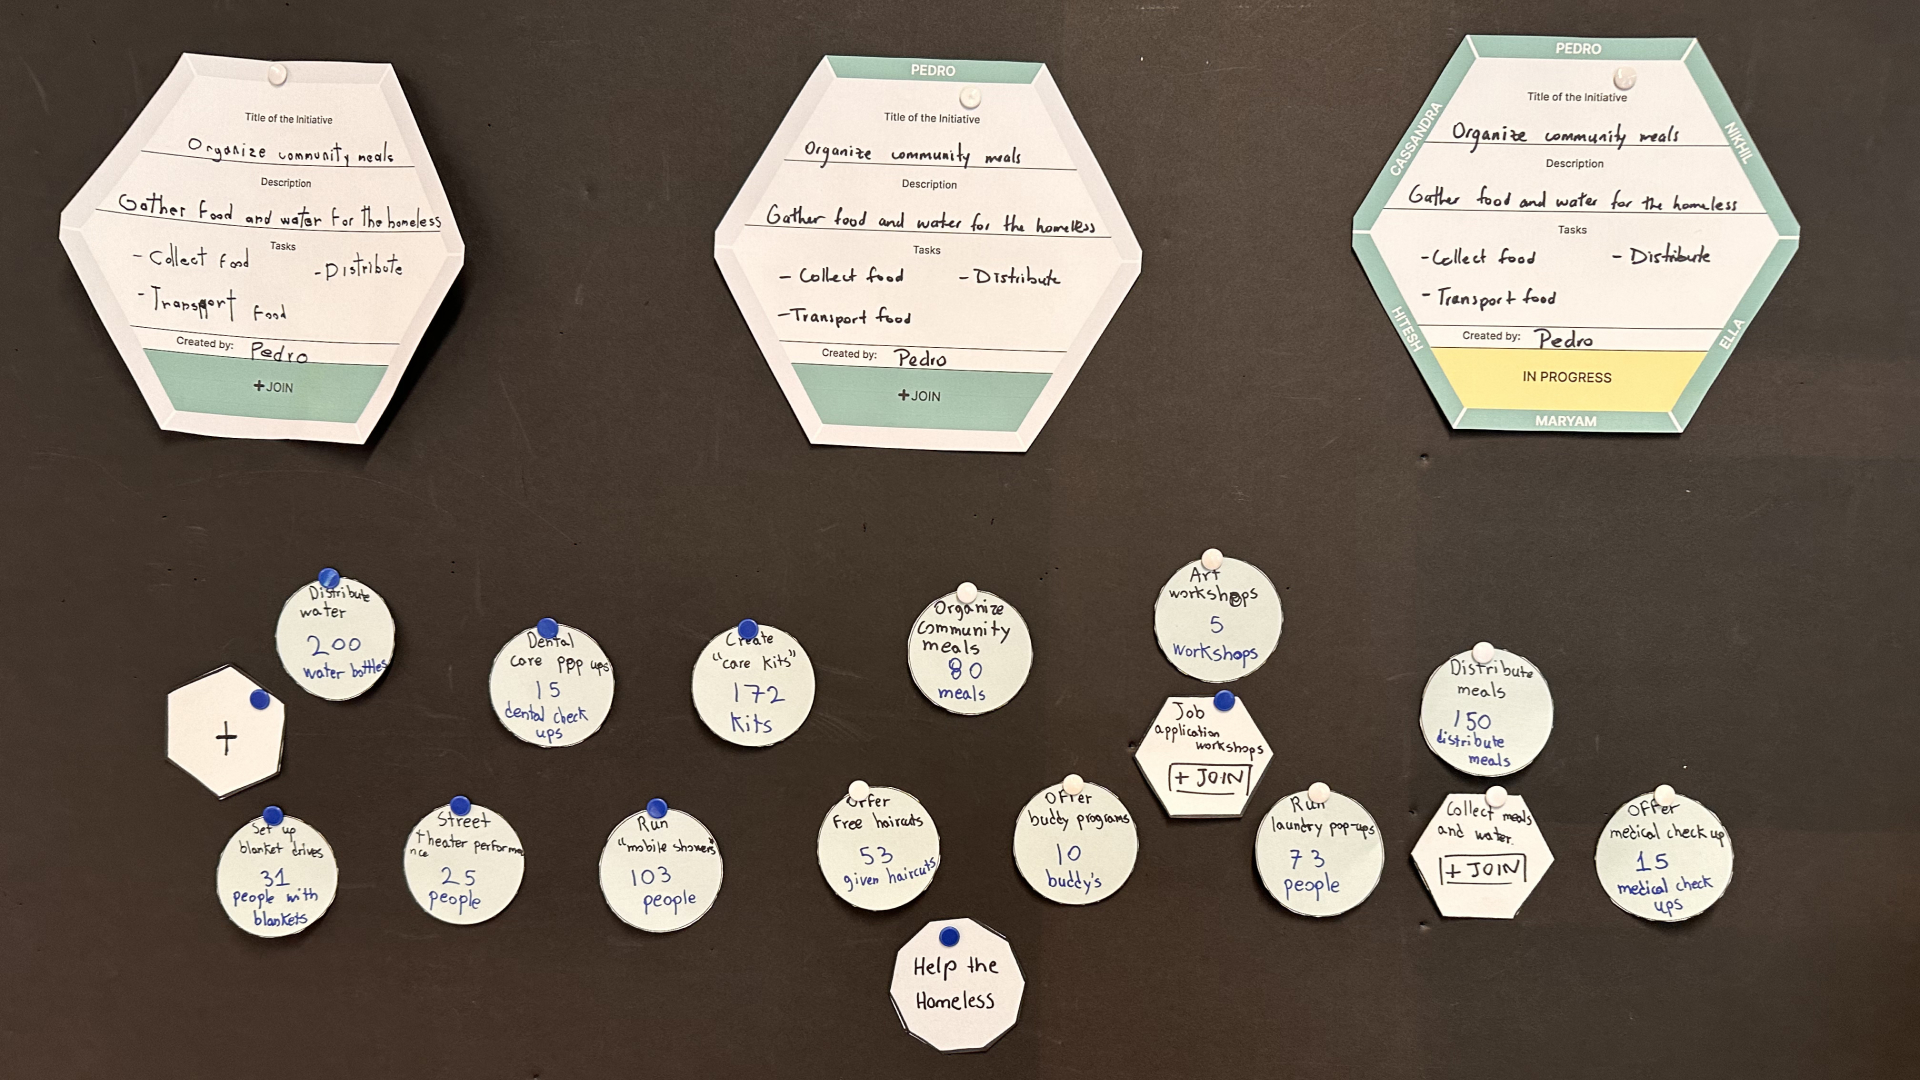 Title of the Initiative
Organize community meals
Description
Gather food and water for the homeless
Tasks
- Collect food
- Distribute
- Transport food
Created by: Pedro
+JOIN
PEDRO
Title of the Initiative
Organize community meals
Description
Gather food and water for the homeless
Tasks
- Collect food
- Distribute
- Transport food
Created by: Pedro
+JOIN
PEDRO
CASSANDRA
NIKHIL
Title of the Initiative
Organize community meals
Description
Gather food and water for the homeless
Tasks
- Collect food
- Distribute
- Transport food
HITESH
ELLA
Created by: Pedro
IN PROGRESS
MARYAM
Distribute
water
200
water bottles
Dental
care pop ups
15
dental check
ups
Create
"care kits"
172
kits
Organize
community
meals
80
meals
Art
workshops
5
workshops
Distribute
meals
150
distribute
meals
+
Job
application
workshops
+ JOIN
Set up
blanket drives
31
people with
blankets
Street
theater performa
nce
25
people
Run
"mobile showers"
103
people
Offer
free haircuts
53
given haircuts
Offer
buddy programs
10
buddy's
Run
laundry pop-ups
73
people
Collect meals
and water
+ JOIN
Offer
medical check up
15
medical check
ups
Help the
Homeless